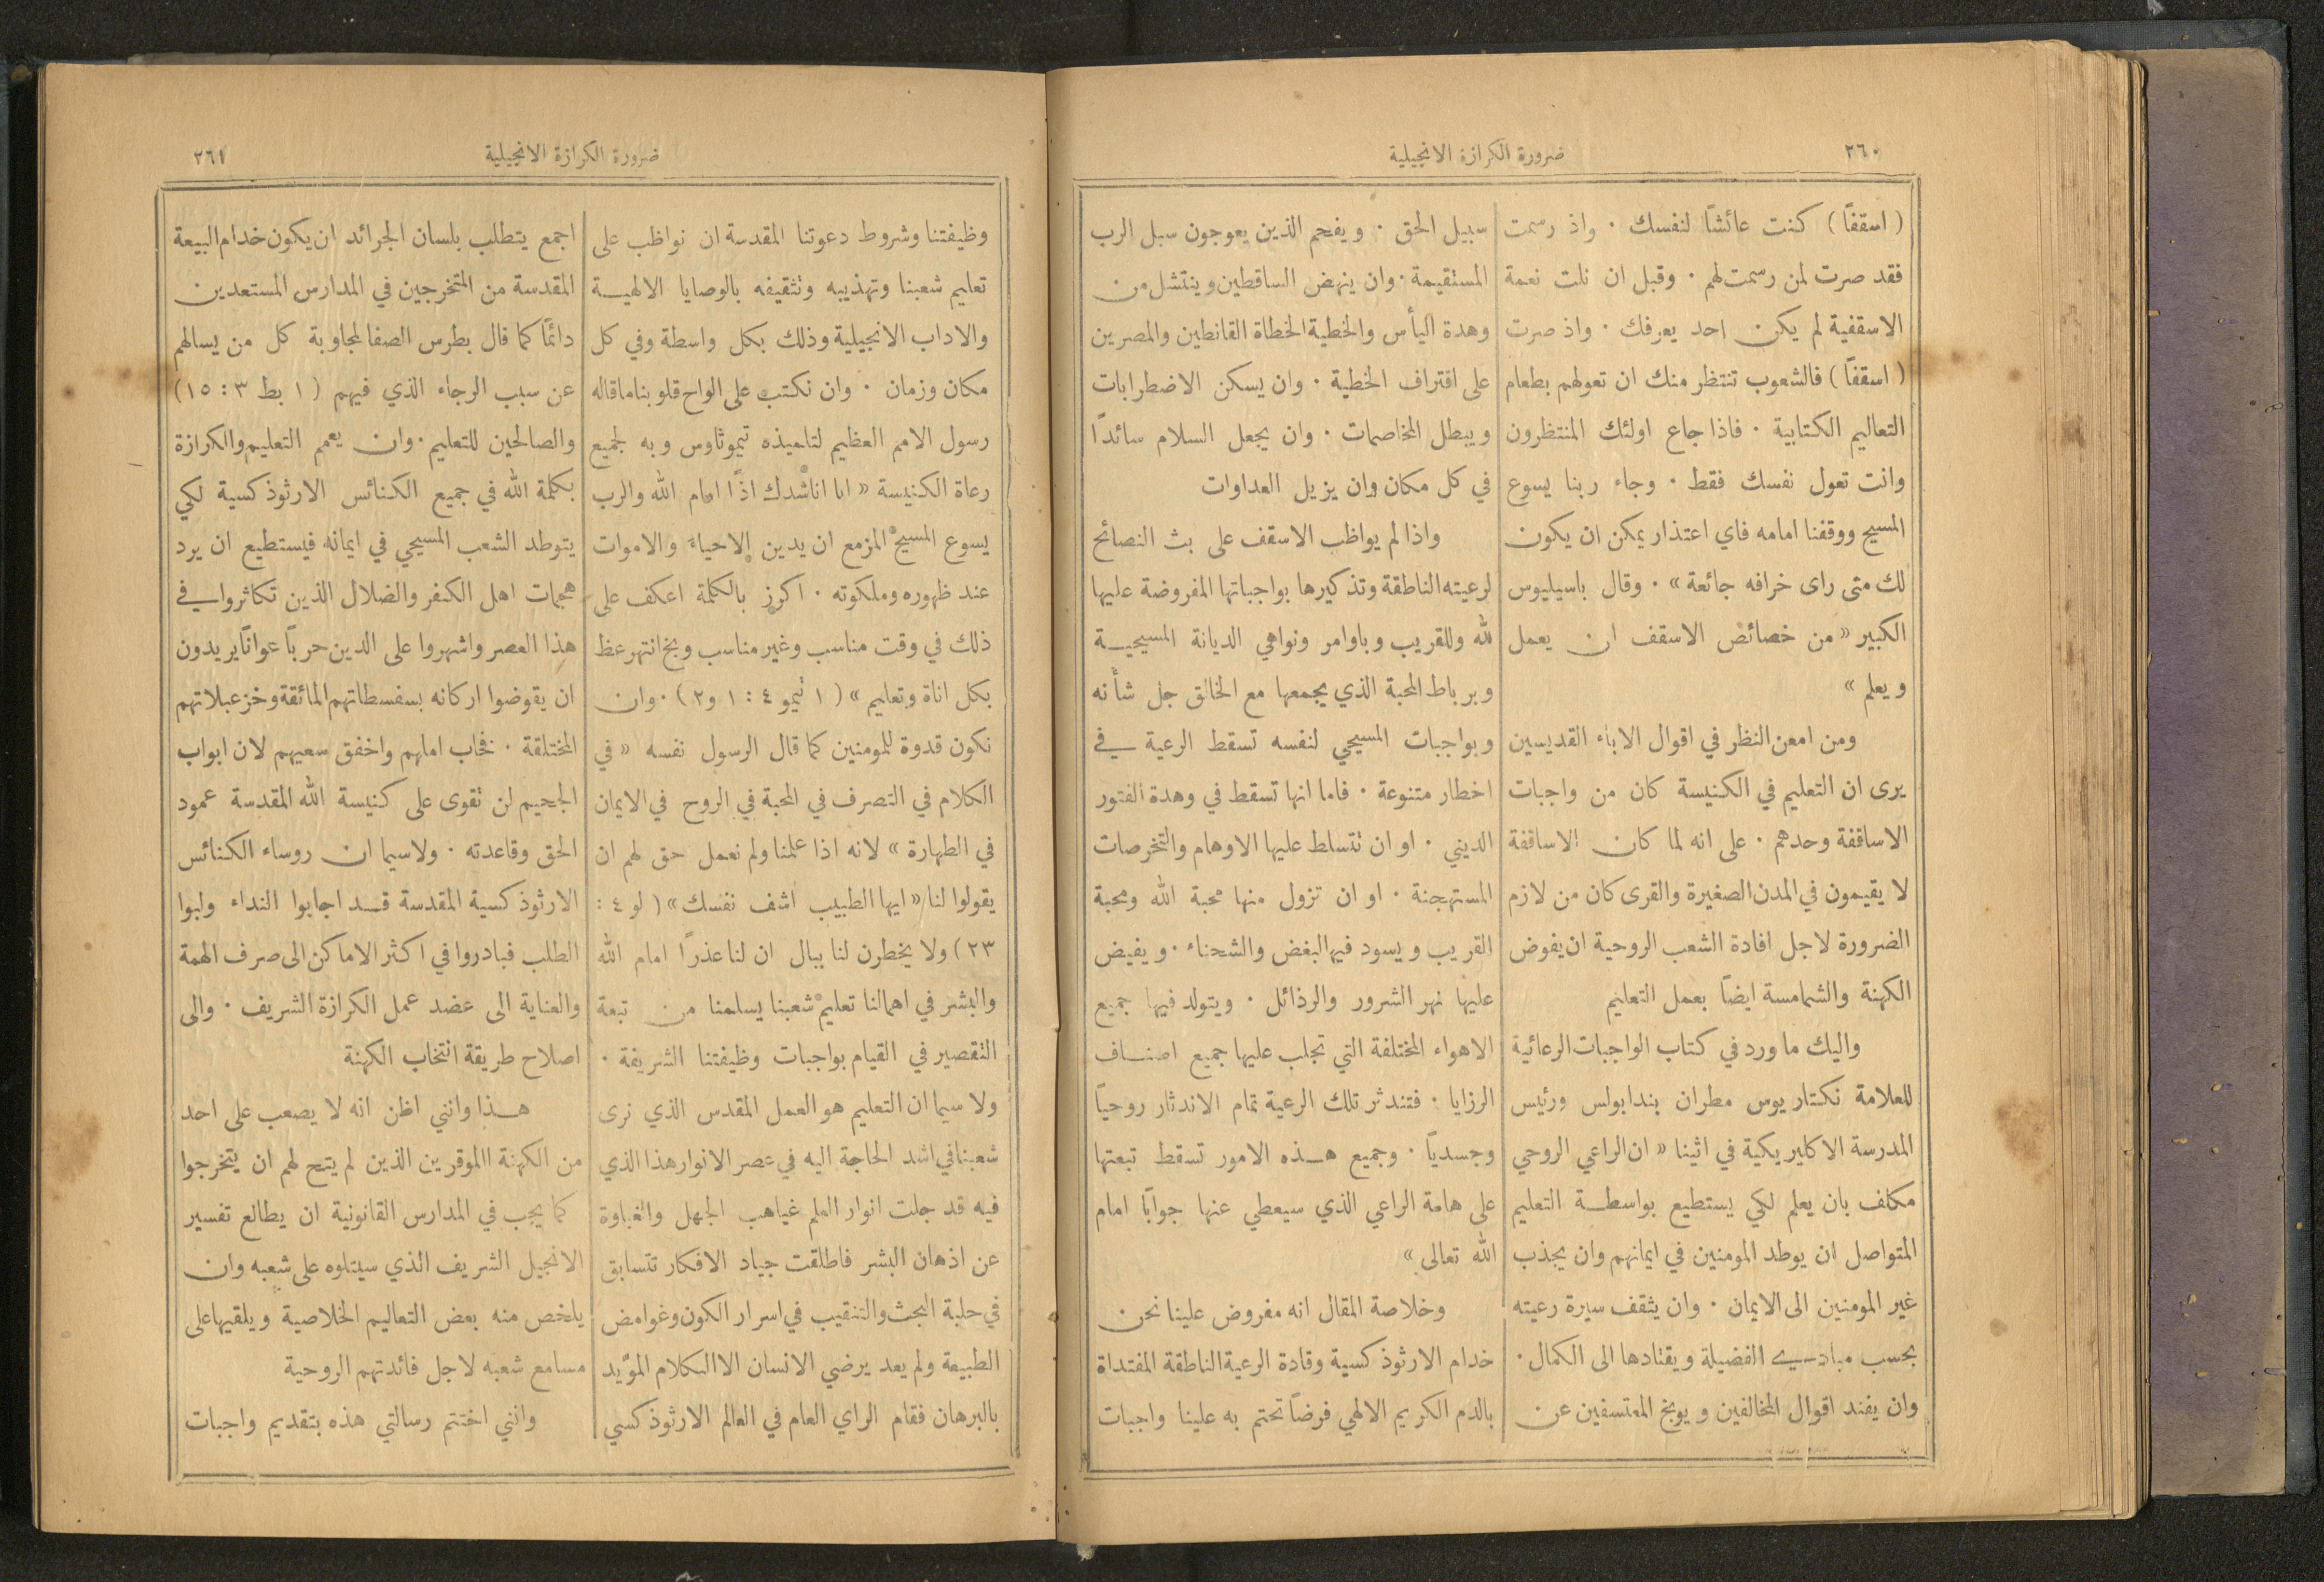 ٢٦٠
ضرورة الكرازة الانجيلية
( اسقفًا ) كنت عائشًا لنفسك ۰ واذ رسمت
فقد صرت لمن رسمت لهم ۰ وقبل ان نلت نعمة
الاسقفية لم يكن احد يعرفك ۰ واذ صرت
( اسقفًا ) فالشعوب تنتظر منك ان تعولهم بطعام
التعاليم الكتابية ۰ فاذا جاع اولئك المنتظرون
وانت تعول نفسك فقط ۰ وجاء ربنا يسوع
المسيح ووقفنا امامه فاي اعتذار يمكن ان يكون
لك متى راى خرافه جائعة » ۰ وقال باسيليوس
الكبير « من خصائص الاسقف ان يعمل
ويعلم »
ومن امعن النظر في اقوال الاباء القديسين
يرى ان التعليم في الكنيسة كان من واجبات
الاساقفة وحدهم ۰ على انه لما كان الاساقفة
لا يقيمون في المدن الصغيرة والقرى كان من لازم
الضرورة لاجل افادة الشعب الروحية ان يفوض
الكهنة والشمامسة ايضًا بعمل التعليم
واليك ما ورد في كتاب الواجبات الرعائية
للعلامة نكتاريوس مطران بندابولس ورئيس
المدرسة الاكليريكية في اثينا « ان الراعي الروحي
مكلف بان يعلم لكي يستطيع بواسطة التعليم
المتواصل ان يوطد المومنين في ايمانهم وان يجذب
غير المومنين الى الايمان ۰ وان يثقف سيرة رعيته
بحسب مبادىء الفضيلة ويقتادها الى الكمال ۰
وان يفند اقوال المخالفين ويوبخ المعتسفين عن
سبيل الحق ۰ ويفحم الذين يعوجون سبل الرب
المستقيمة ۰ وان ينهض الساقطين وينتشل من
وهدة اليأس والخطية الخطاة القانطين والمصرين
على اقتراف الخطية ۰ وان يسكن الاضطرابات
ويبطل المخاصمات ۰ وان يجعل السلام سائدًا
في كل مكان وان يزيل العداوات
واذا لم يواظب الاسقف على بث النصائح
لرعيته الناطقة وتذكيرها بواجباتها المفروضة عليها
لله وللقريب وباوامر ونواهي الديانة المسيحية
وبرباط المحبة الذي يجمعها مع الخالق جل شأنه
وبواجبات المسيحي لنفسه تسقط الرعية في
اخطار متنوعة ۰ فاما انها تسقط في وهدة الفتور
الديني ۰ او ان تتسلط عليها الاوهام والتخرصات
المستهجنة ۰ او ان تزول منها محبة الله ومحبة
القريب ويسود فيها البغض والشحناء ۰ ويفيض
عليها نهر الشرور والرذائل ۰ ويتولد فيها جميع
الاهواء المختلفة التي تجلب عليها جميع اصناف
الرزايا ۰ فتندثر تلك الرعية تمام الاندثار روحيًا
وجسديًا ۰ وجميع هذه الامور تسقط تبعتها
على هامة الراعي الذي سيعطي عنها جوابًا امام
الله تعالى »
وخلاصة المقال انه مفروض علينا نحن
خدام الارثوذكسية وقادة الرعية الناطقة المفتداة
بالدم الكريم الالهي فرضًا تحتم به علينا واجبات
ضرورة الكرازة الانجيلية
٢٦١
وظيفتنا وشروط دعوتنا المقدسة ان نواظب على
تعليم شعبنا وتهذيبه وتثقيفه بالوصايا الالهية
والاداب الانجيلية وذلك بكل واسطة وفي كل
مكان وزمان ۰ وان نكتب على الواح قلوبنا ما قاله
رسول الامم العظيم لتلميذه تيموثاوس وبه لجميع
رعاة الكنيسة « انا اناشدك اذًا امام الله والرب
يسوع المسيح المزمع ان يدين الاحياء والاموات
عند ظهوره وملكوته ۰ اكرز بالكلمة اعكف على
ذلك في وقت مناسب وغير مناسب وبخ انتهر عظ
بكل اناة وتعليم » ( ١ تيمو ٤ : ١ و٢ ) ۰ وان
نكون قدوة للمومنين كما قال الرسول نفسه « في
الكلام في التصرف في المحبة في الروح في الايمان
في الطهارة » لانه اذا علمنا ولم نعمل حق لهم ان
يقولوا لنا « ايها الطبيب اشف نفسك » ( لو ٤ :
٢٣ ) ولا يخطرن لنا ببال ان لنا عذرًا امام الله
والبشر في اهمالنا تعليم شعبنا يسلمنا من تبعة
التقصير في القيام بواجبات وظيفتنا الشريفة ۰
ولا سيما ان التعليم هو العمل المقدس الذي نرى
شعبنا في اشد الحاجة اليه في عصر الانوار هذا الذي
فيه قد جلت انوار العلم غياهب الجهل والغباوة
عن اذهان البشر فاطلقت جياد الافكار تتسابق
في حلبة البحث والتنقيب في اسرار الكون وغوامض
الطبيعة ولم يعد يرضي الانسان الا الكلام المؤيد
بالبرهان فقام الراي العام في العالم الارثوذكسي
اجمع يتطلب بلسان الجرائد ان يكون خدام البيعة
المقدسة من المتخرجين في المدارس المستعدين
دائمًا كما قال بطرس الصفا لمجاوبة كل من يسالهم
عن سبب الرجاء الذي فيهم ( ١ بط ٣ : ١٥ )
والصالحين للتعليم ۰ وان يعمم التعليم والكرازة
بكلمة الله في جميع الكنائس الارثوذكسية لكي
يتوطد الشعب المسيحي في ايمانه فيستطيع ان يرد
هجمات اهل الكفر والضلال الذين تكاثروا في
هذا العصر واشهروا على الدين حربًا عوانًا يريدون
ان يقوضوا اركانه بسفسطاتهم المائقة وخزعبلاتهم
المختلقة ۰ فخاب املهم واخفق سعيهم لان ابواب
الجحيم لن تقوى على كنيسة الله المقدسة عمود
الحق وقاعدته ۰ ولاسيما ان روساء الكنائس
الارثوذكسية المقدسة قد اجابوا النداء ولبوا
الطلب فبادروا في اكثر الاماكن الى صرف الهمة
والعناية الى عضد عمل الكرازة الشريف ۰ والى
اصلاح طريقة انتخاب الكهنة
هذا وانني اظن انه لا يصعب على احد
من الكهنة االموقرين الذين لم يتح لهم ان يتخرجوا
كما يجب في المدارس القانونية ان يطالع تفسير
الانجيل الشريف الذي سيتلوه على شعبه وان
يلخص منه بعض التعاليم الخلاصية ويلقيها على
مسامع شعبه لاجل فائدتهم الروحية
وانني اختتم رسالتي هذه بتقديم واجبات